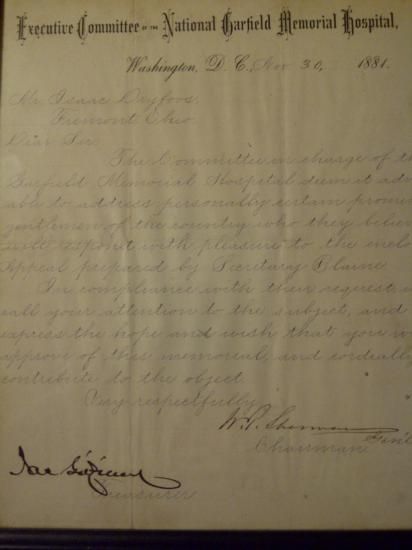 Executive Committee OF THE National Garfield Memorial Hospital,
Washington, D. C., Nov 30, 1881.
Mr. Isaac Dryfoos,
Fremont Ohio
Dear Sir
The Committee in charge of th
Garfield Memorial Hospital deem it adv
able to address personally certain promin
gentlemen of the country who they believ
will respond with pleasure to the inclo
Appeal prepared by Secretary Blaine.
In compliance with their request
call your attention to the subject, and
express the hope and wish that you w
approve of this memorial, and cordially
contribute to the object.
Very respectfully
W. T. Sherman
Genl
Chairman
Treasurer